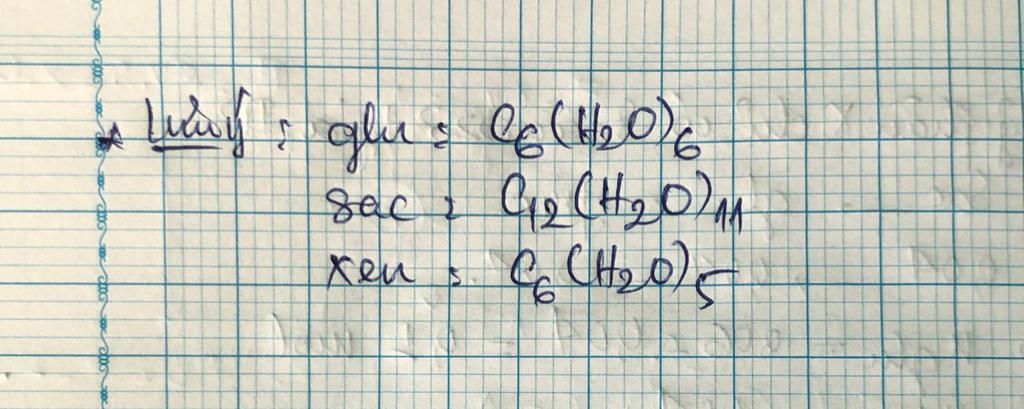 * Lưu ý : glu : C6(H2O)6
sac : C12(H2O)11
xen : C6(H2O)5